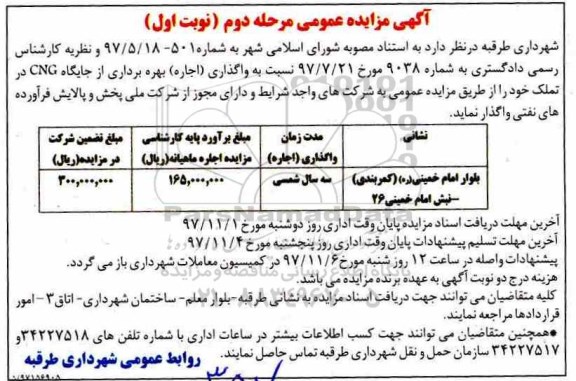 آگهی مزایده عمومی مرحله دوم (نوبت اول)
شهرداری طرقبه درنظر دارد به استناد مصوبه شورای اسلامی شهر به شماره ۵۰۱- ۹۷/۵/۱۸ و نظریه کارشناس
رسمی دادگستری به شماره ۹۰۳۸ مورخ ۹۷/۷/۲۱ نسبت به واگذاری (اجاره) بهره برداری از جایگاه CNG در
تملک خود را از طریق مزایده عمومی به شرکت های واجد شرایط و دارای مجوز از شرکت ملی پخش و پالایش فرآورده
های نفتی واگذار نماید.
نشانی
مدت زمان واگذاری (اجاره)
مبلغ برآورد پایه کارشناسی مزایده اجاره ماهیانه(ریال)
مبلغ تضمین شرکت در مزایده(ریال)
بلوار امام خمینی(ره) (کمربندی) –نبش امام خمینی۲۶
سه سال شمسی
۱۶۵,۰۰۰,۰۰۰
۳۰۰,۰۰۰,۰۰۰
آخرین مهلت دریافت اسناد مزایده پایان وقت اداری روز دوشنبه مورخ ۹۷/۱۱/۱
آخرین مهلت تسلیم پیشنهادات پایان وقت اداری روز پنجشنبه مورخ ۹۷/۱۱/۴
پیشنهادات واصله در ساعت ۱۲ روز شنبه مورخ ۹۷/۱۱/۶ در کمیسیون معاملات شهرداری باز می گردد.
هزینه درج دو نوبت آگهی به عهده برنده مزایده می باشد.
کلیه متقاضیان می توانند جهت دریافت اسناد مزایده به نشانی طرقبه -بلوار معلم- ساختمان شهرداری- اتاق۳ - امور
قراردادها مراجعه نمایند.
●همچنین متقاضیان می توانند جهت کسب اطلاعات بیشتر در ساعات اداری با شماره تلفن های ۳۴۲۲۷۵۱۸و
۳۴۲۲۷۵۱۷ سازمان حمل و نقل شهرداری طرقبه تماس حاصل نمایند.
روابط عمومی شهرداری طرقبه